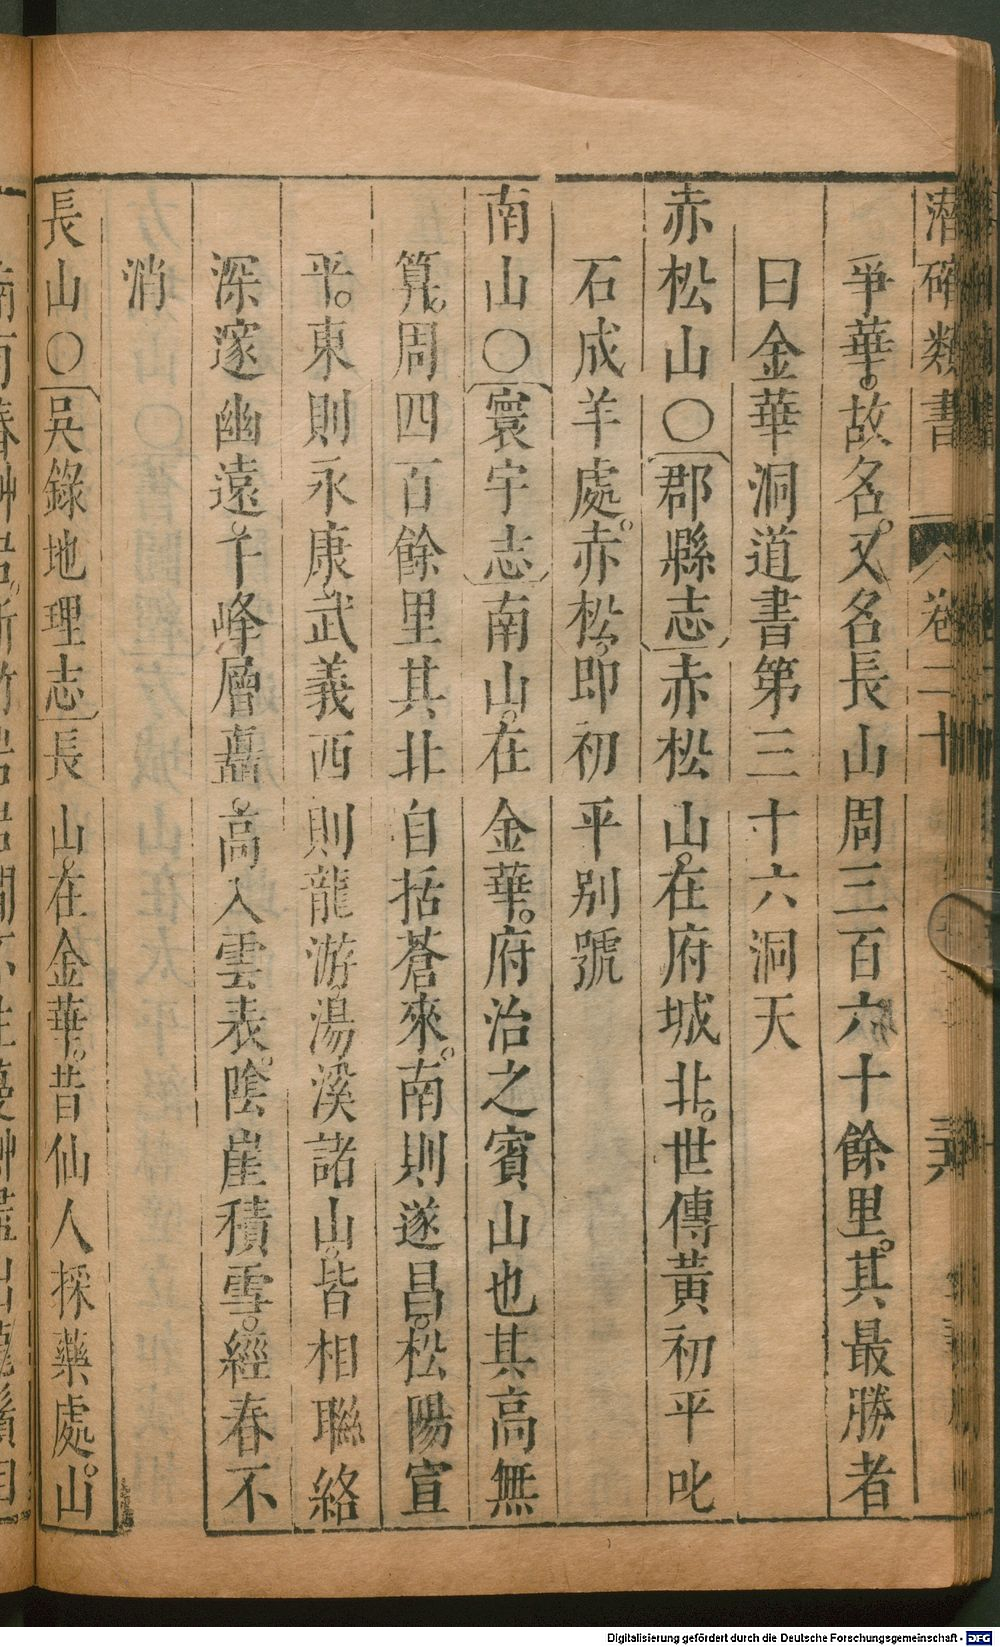 潛確類書 卷二十
爭華。故名。又名長山周三百六十餘里。其最勝者
曰金華洞道書第三十六洞天
赤松山○郡縣志赤松山。在府城北。世傳黃初平叱
石成羊處。赤松。即初平別號
南山○寰宇志南山。在金華。府治之賓山也其高無
算。周四百餘里其北自括蒼來。南則遂昌。松陽宣
平。東則永康武義西則龍游。湯溪諸山。皆相聯絡
深邃幽遠。千峰層矗。高入雲表。陰崖積雪。經春不
消
長山○吳錄地理志長山。在金華。昔仙人採藥處。山
Digitalisierung gefördert durch die Deutsche Forschungsgemeinschaft - DFG